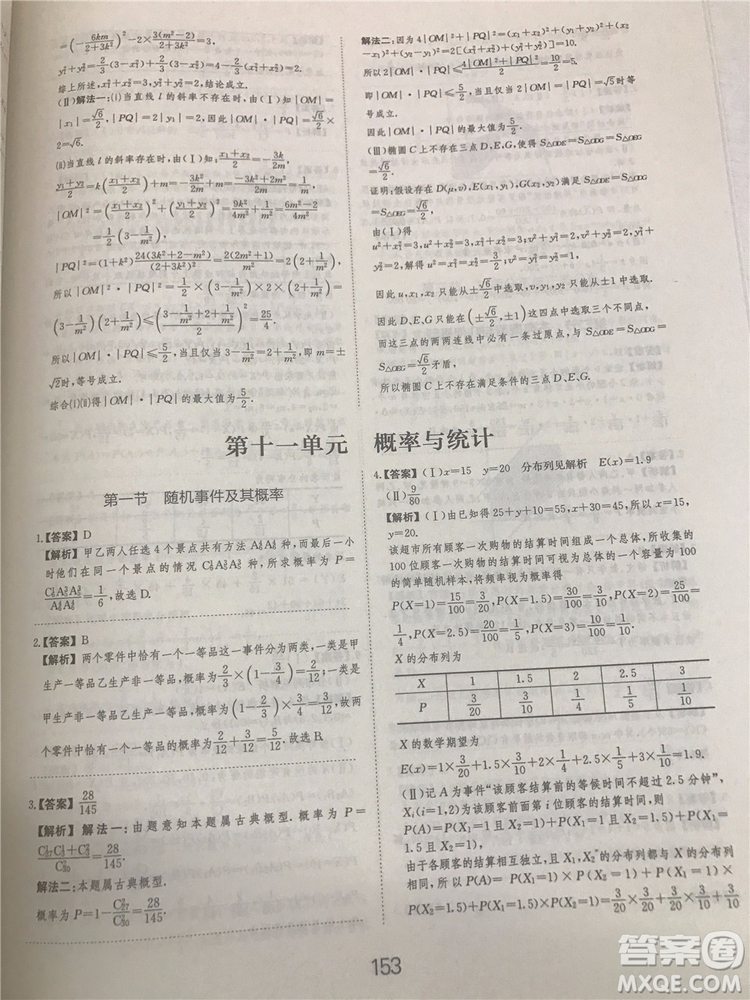 =(-6km/(2+3k²))²-2×3(m²-2)/(2+3k²)=3,
y₁²+y₂²=2/3(3-x₁²)+2/3(3-x₂²)=4-2/3(x₁²+x₂²)=2,
综上所述,x₁²+x₂²=3,y₁²+y₂²=2,结论成立.
(Ⅱ)解法一:(ⅰ)当直线l的斜率不存在时,由(Ⅰ)知|OM|=
|x₁|=√6/2,|PQ|=2|y₁|=2,因此|OM|·|PQ|=√6/2×
2=√6.
(ⅱ)当直线l的斜率存在时,由(Ⅰ)知:(x₁+x₂)/2=3k/2m,
(y₁+y₂)/2=k((x₁+x₂)/2)+m=-3k²/2m+m=(-3k²+2m²)/2m=1/m,
|OM|²=((x₁+x₂)/2)²+((y₁+y₂)/2)²=9k²/4m²+1/m²=(6m²-2)/4m²
=1/2(3-1/m²),
|PQ|²=(1+k²)24(3k²+2-m²)/(2+3k²)²=2(2m²+1)/m²=2(2+1/m²),
所以|OM|²·|PQ|²=1/2×(3-1/m²)×2×(2+1/m²)=
(3-1/m²)(2+1/m²)≤((3-1/m²+2+1/m²)/2)²=25/4.
所以|OM|·|PQ|≤5/2,当且仅当3-1/m²=2+1/m²,即m=±
√2时,等号成立.
综合(ⅰ)(ⅱ)得|OM|·|PQ|的最大值为5/2.
解法二:因为4|OM|²+|PQ|²=(x₁+x₂)²+(y₁+y₂)²+(x₂
-x₁)²+(y₂-y₁)²=2[(x₁²+x₂²)+(y₁²+y₂²)]=10.
所以2|OM|·|PQ|≤(4|OM|²+|PQ|²)/2=10/2=5.
即|OM|·|PQ|≤5/2,当且仅当2|OM|=|PQ|=√5时等
号成立.
因此|OM|·|PQ|的最大值为5/2.
(Ⅲ)椭圆C上不存在三点D,E,G,使得S△ODE=S△ODG=S△OEG
=√6/2.
证明:假设存在D(μ,v),E(x₁,y₁),G(x₂,y₂)满足S△ODE=S△ODG
=S△OEG=√6/2,
由(Ⅰ)得
u²+x₁²=3,u²+x₂²=3,x₁²+x₂²=3;v²+y₁²=2,v²+y₂²=2,y₁²+y₂²=2,
解得u²=x₁²=x₂²=3/2;v²=y₁²=y₂²=1,
因此u,x₁,x₂只能从±√6/2中选取,v,y₁,y₂只能从±1中选取,
因此D、E、G,只能在(±√6/2,±1)这四点中选取三个不同点,
而这三点的两两连线中必有一条过原点,与S△ODE=S△ODG=
S△OEG=√6/2矛盾,
所以椭圆C上不存在满足条件的三点D、E、G.
第十一单元 概率与统计
第一节 随机事件及其概率
1.【答案】D
【解析】甲乙两人任选4个景点共有方法A⁴₆A⁴₆种,而最后一小
时他们在同一个景点的情况C¹₆A³₅A³₅种,所以概率P=
C¹₆A³₅A³₅/A⁴₆A⁴₆=1/6,故选D.
2.【答案】B
【解析】两个零件中恰有一个一等品这一事件分为两类,一是甲
生产一等品乙生产非一等品,概率为2/3×(1-3/4)=2/12;二是
甲生产非一等品乙生产一等品,概率为(1-2/3)×3/4=3/12,故两
个零件中恰有一个一等品的概率为2/12+3/12=5/12.故选B.
3.【答案】28/145
【解析】解法一:由题意知本题属古典概型.概率为P=
(C¹₂₇C¹₃+C²₃)/C²₃₀=28/145.
解法二:本题属古典概型.
概率为P=1-C²₂₇/C²₃₀=28/145.
4.【答案】(Ⅰ)x=15 y=20 分布列见解析 E(x)=1.9
(Ⅱ)9/80
【解析】(Ⅰ)由已知得25+y+10=55,x+30=45,所以x=15,
y=20.
该超市所有顾客一次购物的结算时间组成一个总体,所收集的
100位顾客一次购物的结算时间可视为总体的一个容量为100
的简单随机样本,将频率视为概率得
P(X=1)=15/100=3/20,P(X=1.5)=30/100=3/10,P(X=2)=25/100=
1/4,P(X=2.5)=20/100=1/5,P(X=3)=10/100=1/10.
X的分布列为
X 1 1.5 2 2.5 3
P 3/20 3/10 1/4 1/5 1/10
X的数学期望为
E(x)=1×3/20+1.5×3/10+2×1/4+2.5×1/5+3×1/10=1.9.
(Ⅱ)记A为事件“该顾客结算前的等候时间不超过2.5分钟”,
Xᵢ(i=1,2)为该顾客前面第i位顾客的结算时间,则
P(A)=P(X₁=1且X₂=1)+P(X₁=1且X₂=1.5)+P(X₁=
1.5且X₂=1).
由于各顾客的结算相互独立,且X₁,X₂的分布列都与X的分布列
相同,所以P(A)=P(X₁=1)×P(X₂=1)+P(X₁=1)×
P(X₂=1.5)+P(X₁=1.5)×P(X₂=1)=3/20×3/20+3/20×3/10+3/10×
153
答案圈
MXQE.COM